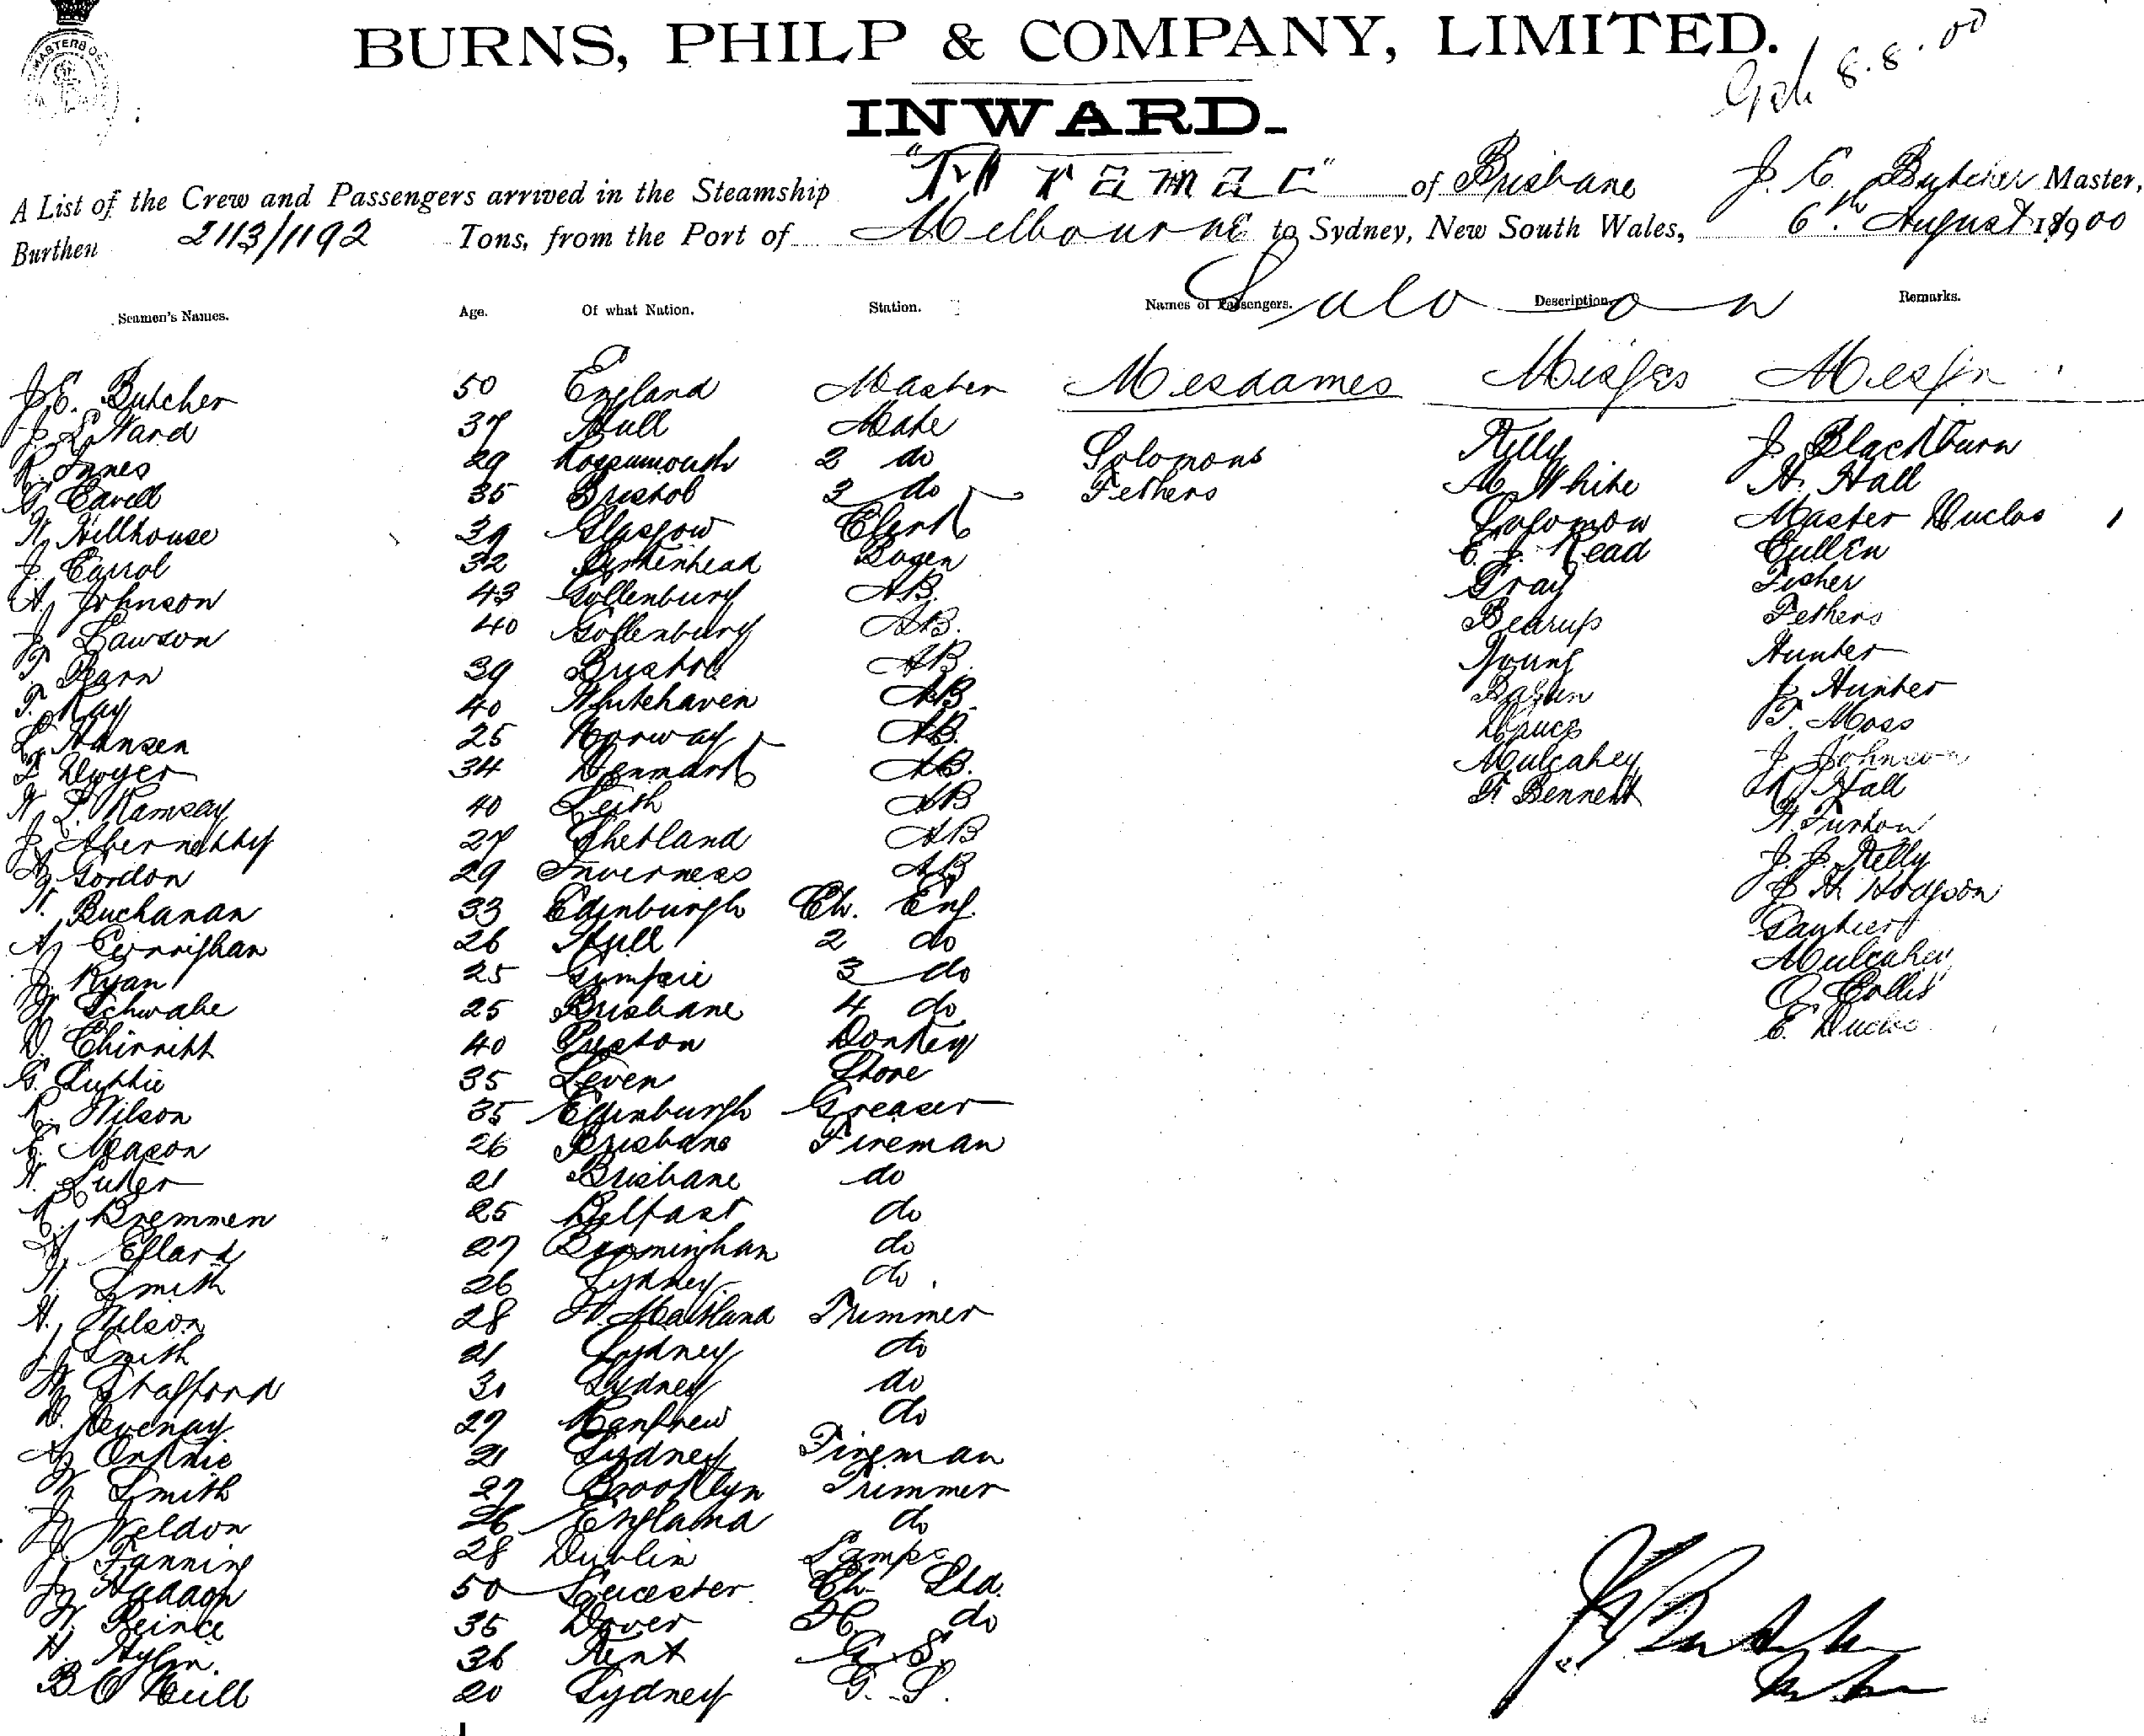 MASTERS OF
BURNS, PHILP & COMPANY, LIMITED.
8.8.00
INWARD.
A List of the Crew and Passengers arrived in the Steamship "Aramac" of Brisbane J. E. Butcher Master,
Burthen 2113/1192 Tons, from the Port of Melbourne to Sydney, New South Wales, 6th August 1900
Saloon
Seamen's Names. Age. Of what Nation. Station. Names of Passengers. Description. Remarks.
J. E. Butcher 50 England Master Mesdames Misses Messrs
J. L. Ward 37 Hull Mate
R. Innes 29 2 do Solomons Kelly J. Blackburn
G. Cavell 35 Bristol 3 do Fethers M. White H. Hall
W. Hillhouse 39 Glasgow Clerk Solomon Master Duclos
J. Carrol 32 Birkenhead Bosen E. J. Read Cullen
A. Johnson 43 Gottenburg AB. Gray Fisher
J. Lawson 40 Gottenburg AB. Bearup Fethers
T. Barn 39 Bristol AB. Young Hunter
T. Kay 40 Whitehaven AB. J. Hunter
L. Hansen 25 Norway AB. Bruce T. Moss
Dwyer 34 Denmark AB. Mulcahey J. Johnson
W. L. Ramsay 40 Leith AB Bennett Hall
J. Abernethy 27 Shetland AB
A. Gordon 29 Inverness AB J. J. Kelly
W. Buchanan 33 Edinburgh Ch. Eng. Hodgson
A. Cernighan 26 Hull 2 do Gautier
J. Ryan 25 Gympie 3 do Mulcahey
Schwabe 25 Brisbane 4 do Collis
D. Chirnitt 40 Preston Donkey E. Duclos
G. Luthie 35 Leven Store
R. Wilson 35 Edinburgh Greaser
E. Meason 26 Brisbane Fireman
W. Luker 21 Brisbane do
Bremmen 25 Belfast do
Ellard 27 Birmingham do
W. Smith 26 Sydney do
H. Wilson 28 W. Maitland Trimmer
J. Smith 21 Sydney do
W. Stafford 31 Sydney do
D. Devenay 27 Renfrew do
21 Sydney Fireman
W. Smith 27 Brooklyn Trimmer
J. Weldon 26 England do
J. Fanning 28 Dublin Lamps
J. Haddon 50 Leicester Ch. Std.
W. 35 Dover 2C do
H. 36 Kent G. S.
B. O'Neill 20 Sydney G. S.
J. E. Butcher
Master